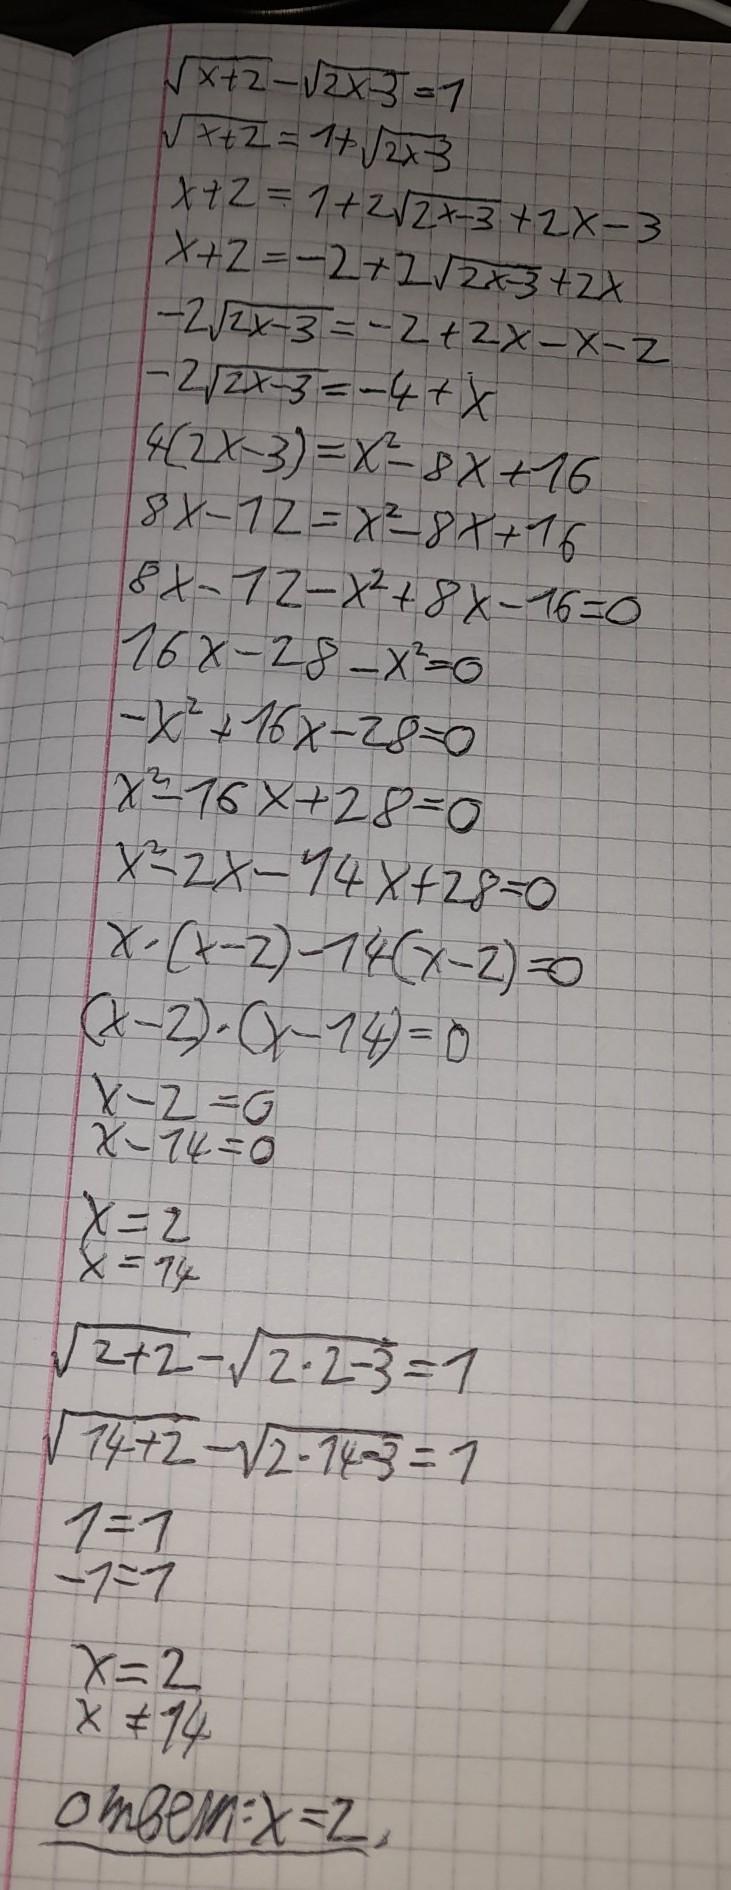 √(x+2) - √(2x-3) = 1
√(x+2) = 1 + √(2x-3)
x+2 = 1 + 2√(2x-3) + 2x - 3
x+2 = -2 + 2√(2x-3) + 2x
-2√(2x-3) = -2 + 2x - x - 2
-2√(2x-3) = -4 + x
4(2x-3) = x² - 8x + 16
8x - 12 = x² - 8x + 16
8x - 12 - x² + 8x - 16 = 0
16x - 28 - x² = 0
-x² + 16x - 28 = 0
x² - 16x + 28 = 0
x² - 2x - 14x + 28 = 0
x·(x-2) - 14(x-2) = 0
(x-2)·(x-14) = 0
x - 2 = 0
x - 14 = 0
x = 2
x = 14
√(2+2) - √(2·2-3) = 1
√(14+2) - √(2·14-3) = 1
1 = 1
-1 = 1
x = 2
x ≠ 14
ответ: x = 2.